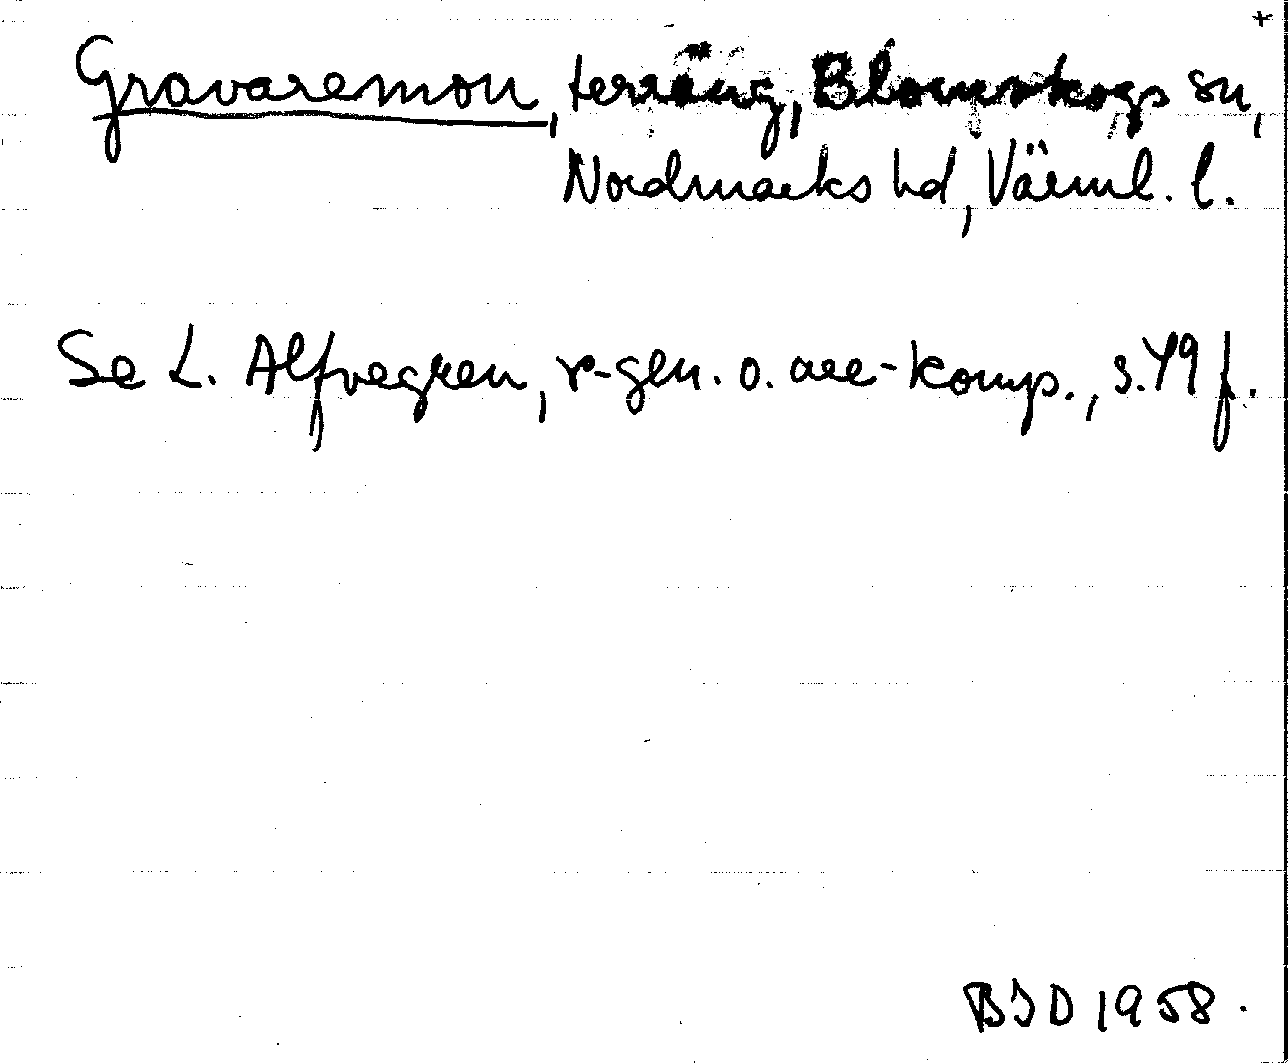 +
Gravaremon, terräng, Blomskogs sn,
Nordmarks hd, Värml. l.
Se L. Alfvegren, r-gen. o. are-komp., s. 79 f.
BJD 1958.